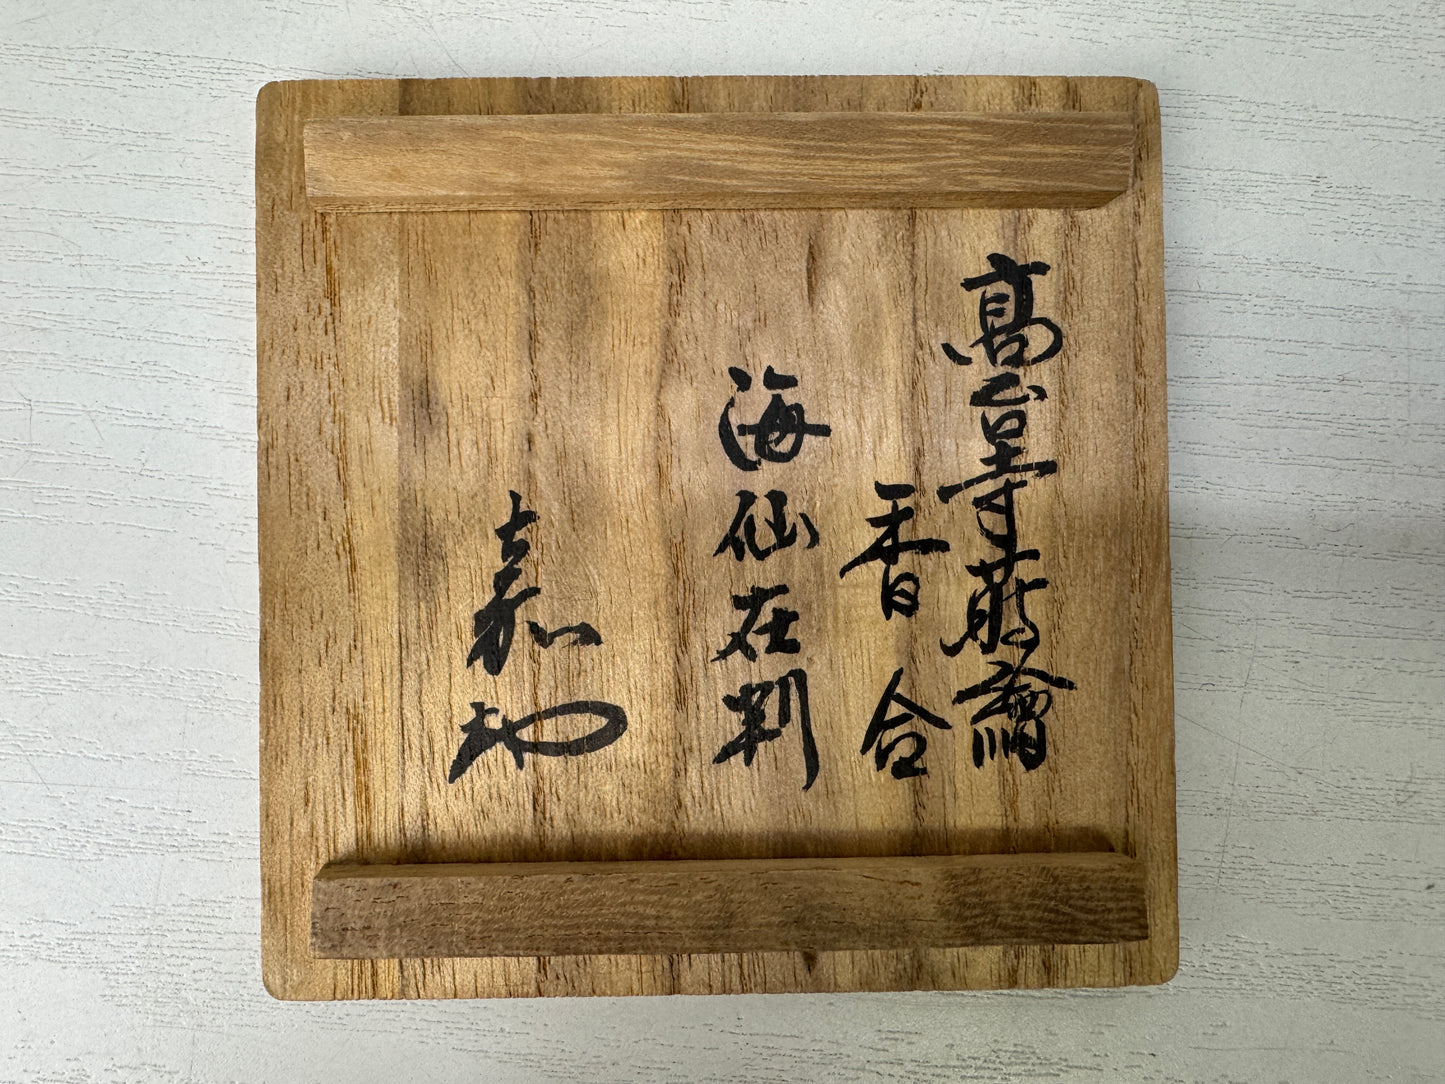 高台寺蒔繪
香合
海仙在判
嘉祐